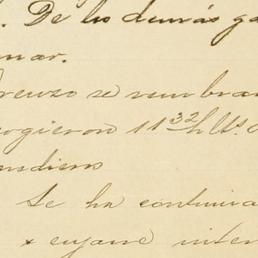 . De los demás ga
mar.
renzo se sembrar
cogieron 11 32 hlts. d
ndieno
Se ha continua
x ejane inter